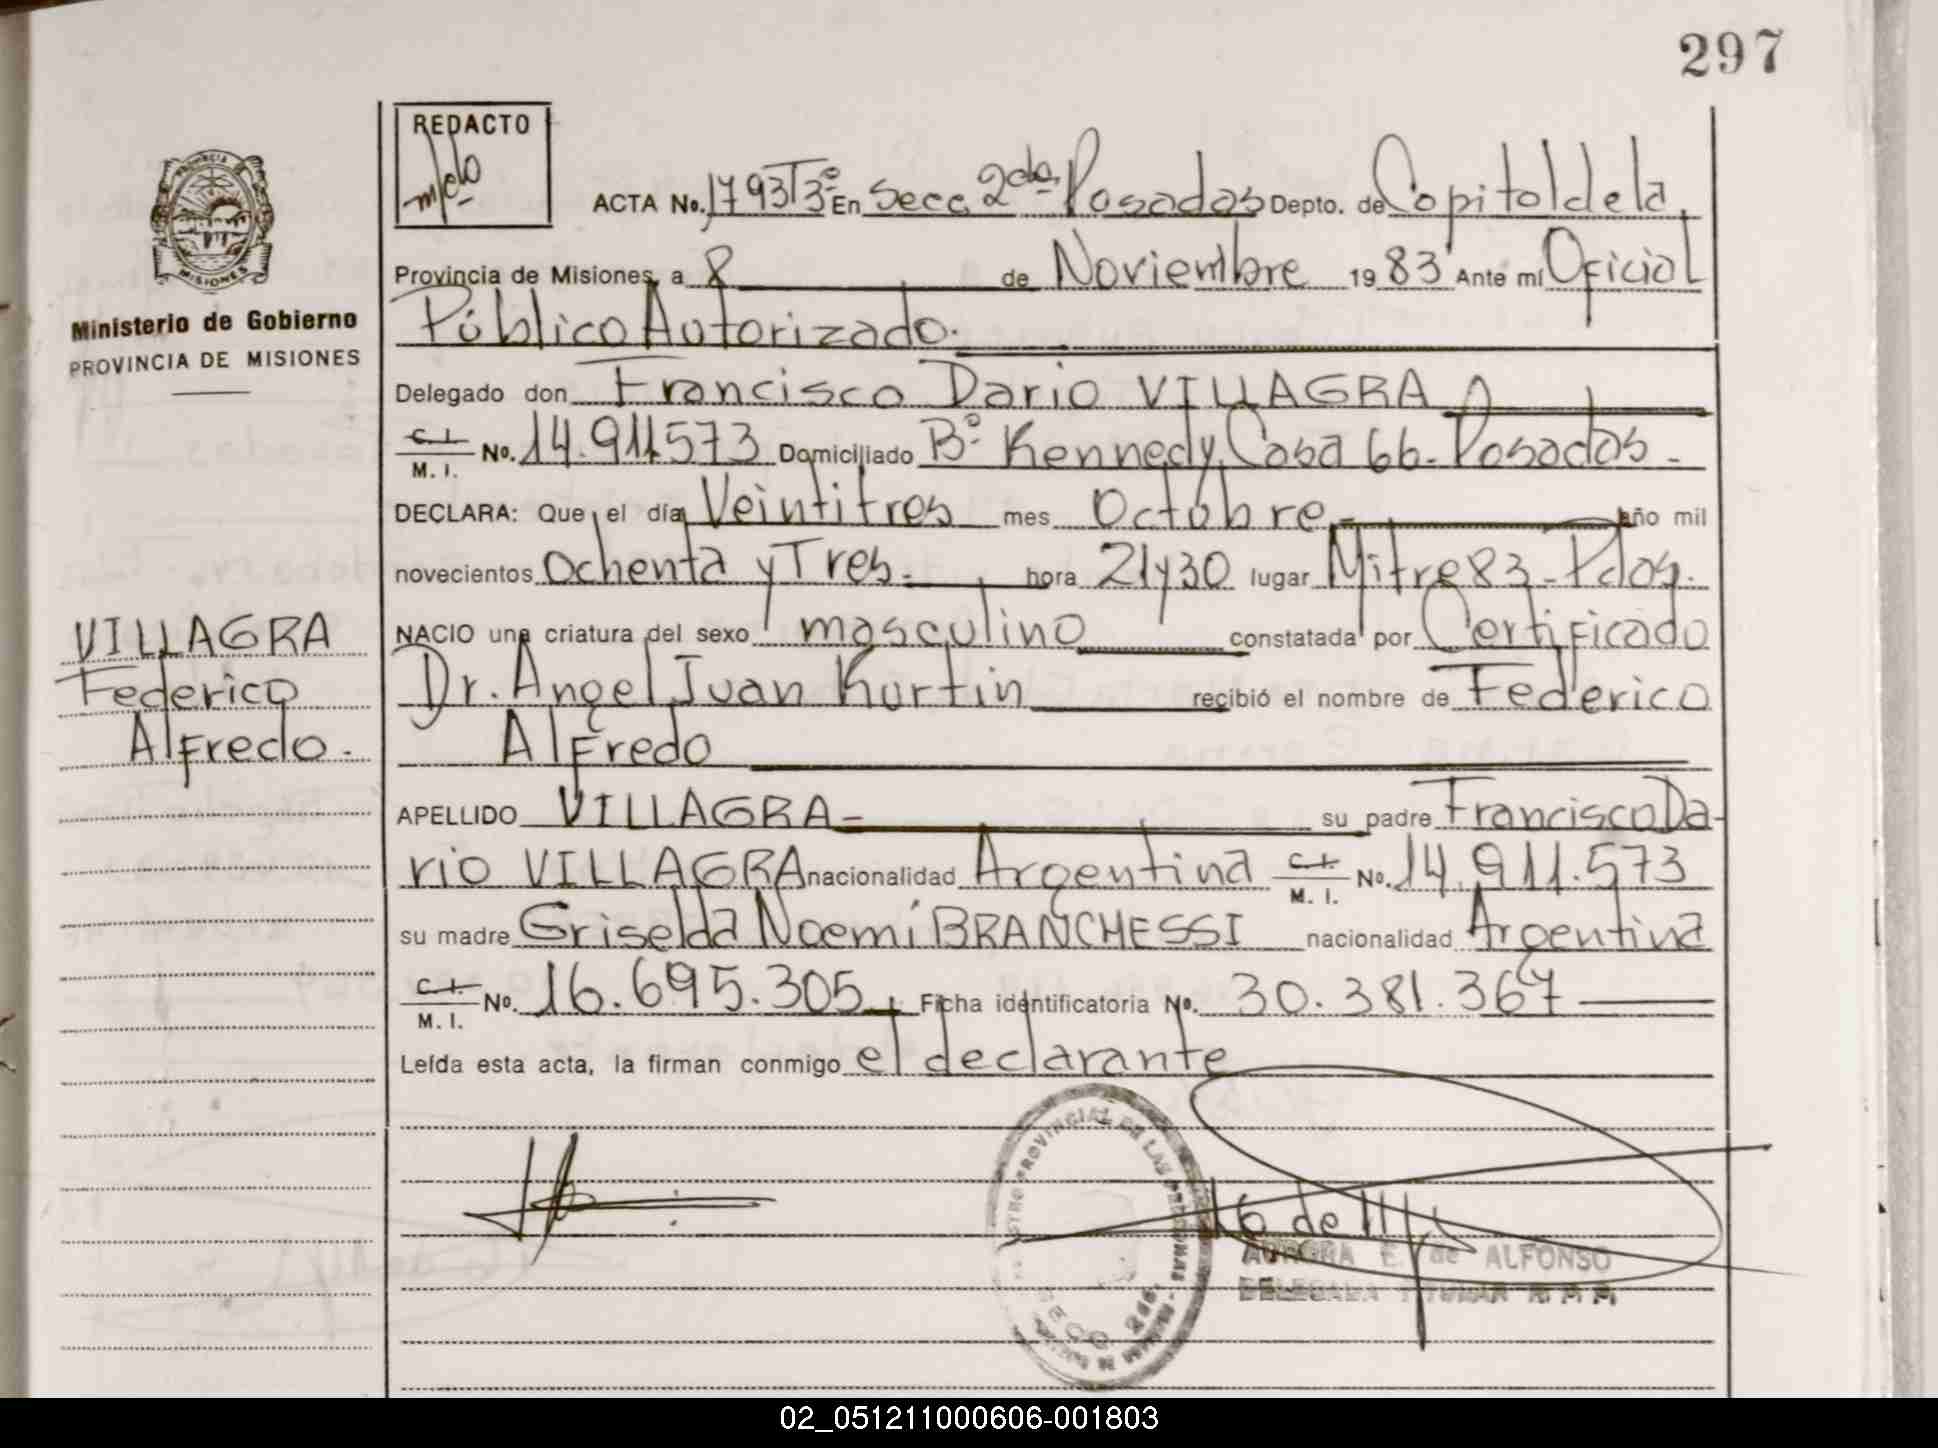 297
REDACTO
ACTA No. 1793T3º En Secc. 2da. Posadas Depto. de Capital de la
Provincia de Misiones, a 8 de Noviembre 1983 Ante mí Oficial
Público Autorizado.
Ministerio de Gobierno
PROVINCIA DE MISIONES
Delegado don Francisco Dario VILLAGRA
C.I. M. I. No. 14.911.573 Domiciliado Bº Kennedy, Casa 66 - Posadas -
DECLARA: Que el día Veintitres mes Octubre - año mil
novecientos Ochenta y Tres. hora 21y30 lugar Mitre 83 - Pdas.
NACIO una criatura del sexo masculino constatada por Certificado
Dr. Angel Juan Kurtin recibió el nombre de Federico
Alfredo
VILLAGRA
Federico
Alfredo.
APELLIDO VILLAGRA - su padre Francisco Da-
rio VILLAGRA nacionalidad Argentina C.I. M. I. No. 14.911.573
su madre Griselda Noemí BRANCHESSI nacionalidad Argentina
C.I. M. I. No. 16.695.305 Ficha identificatoria No. 30.381.367
Leída esta acta, la firman conmigo el declarante
REGISTRO PROVINCIAL DE LAS PERSONAS
SECC. 2da.
16 de 11
AURORA E. de ALFONSO
DELEGADA TITULAR R. P. P.
02_051211000606-001803